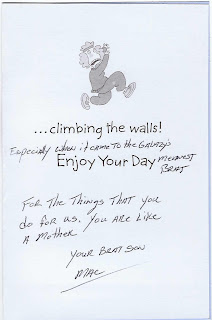 ...climbing the walls!
Especially when it came to the GALAXY'S
MEANEST
Enjoy Your Day BRAT
FOR THE THINGS THAT YOU
do FOR US. YOU ARE LIKE
A MOTHER
YOUR BRAT SON
MAC